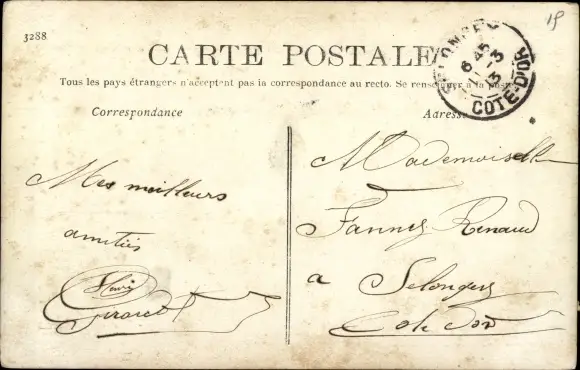 3288
19
CARTE POSTALE
SELONGEY
6 45
11 - 3
13
COTE-D'OR
Tous les pays étrangers n'acceptent pas la correspondance au recto. Se renseigner à la poste
Correspondance
Adresse
Mes meilleurs
amitiés
Girardot
Mademoiselle
Fanny Renaud
a Selongey
Cote d'or